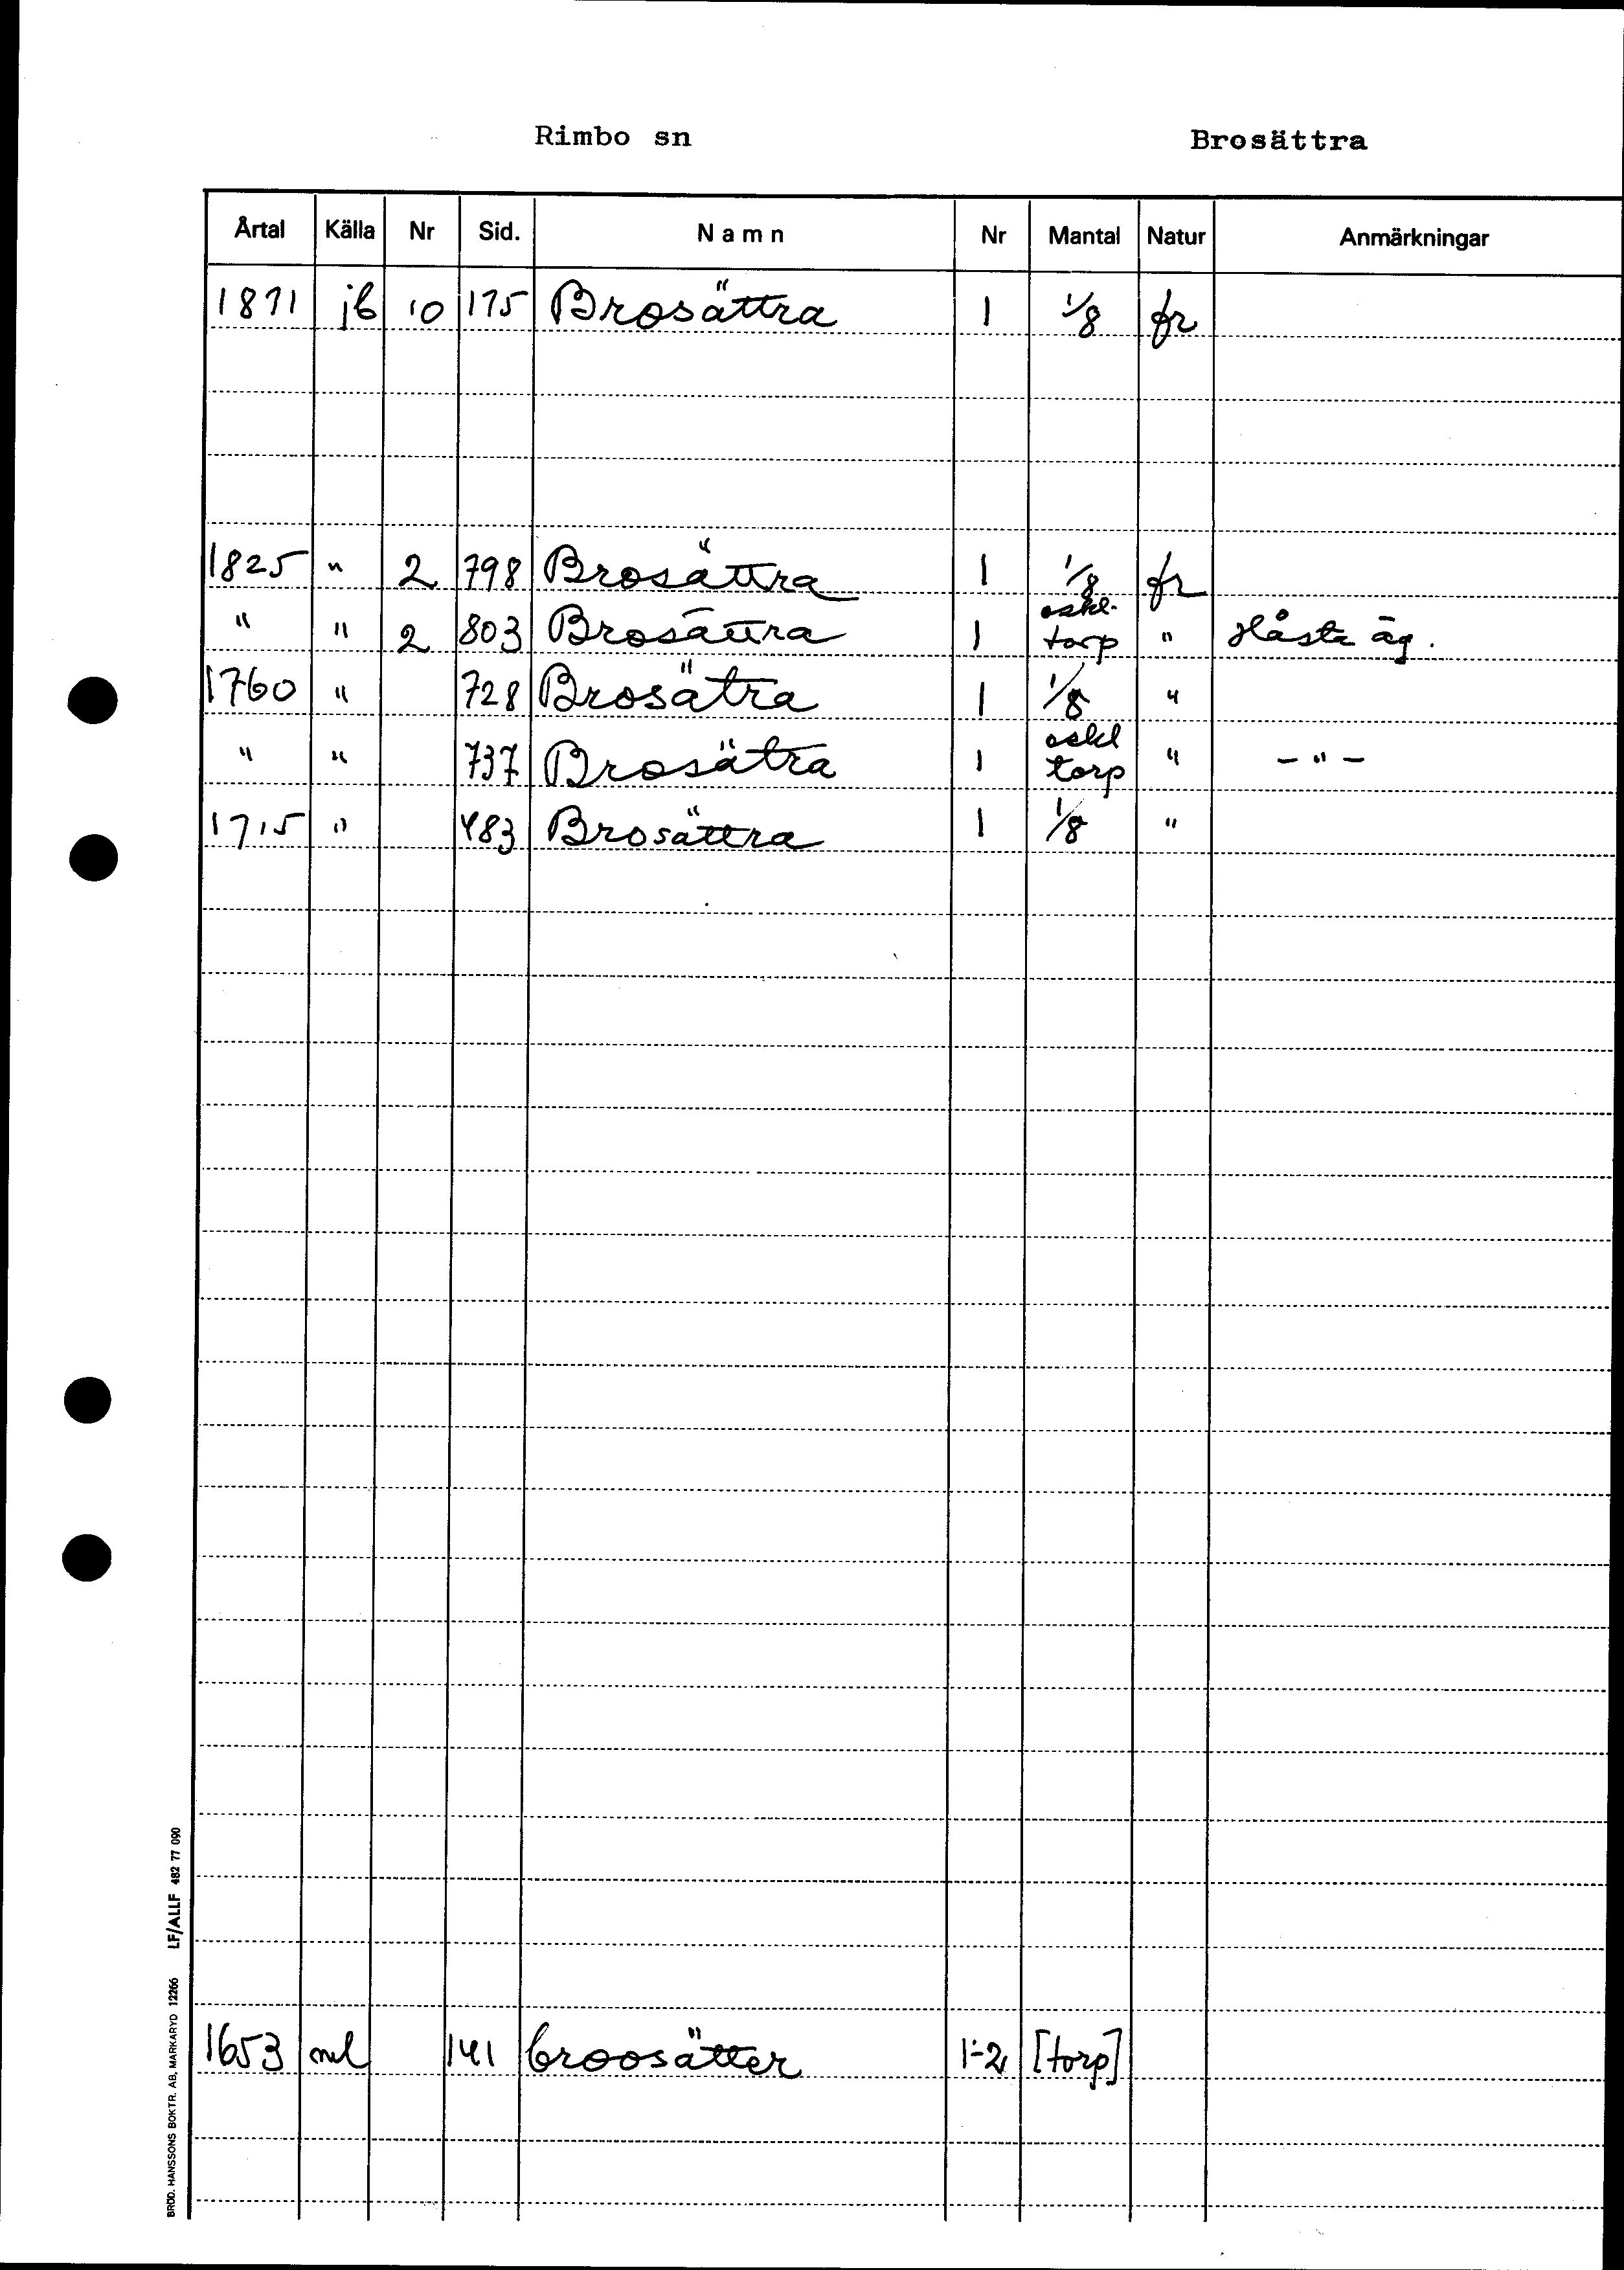 Rimbo sn Brosättra
Årtal Källa Nr Sid. Namn Nr Mantal Natur Anmärkningar
1871 jb 10 175 Brosättra 1 1/8 fr
1825 " 2 798 Brosättra 1 1/8 fr
" " 2 803 Brosättra 1 oskl. torp " Håsta äg.
1760 " 728 Brosätra 1 1/8 "
" " 737 Brosätra 1 oskl torp " – " –
1715 " 483 Brosättra 1 1/8 "
1653 ml 141 broosätter 1-2 [torp]
BRÖD. HANSSONS BOKTR. AB, MARKARYD 12266 LF/ALLF 482 77 090